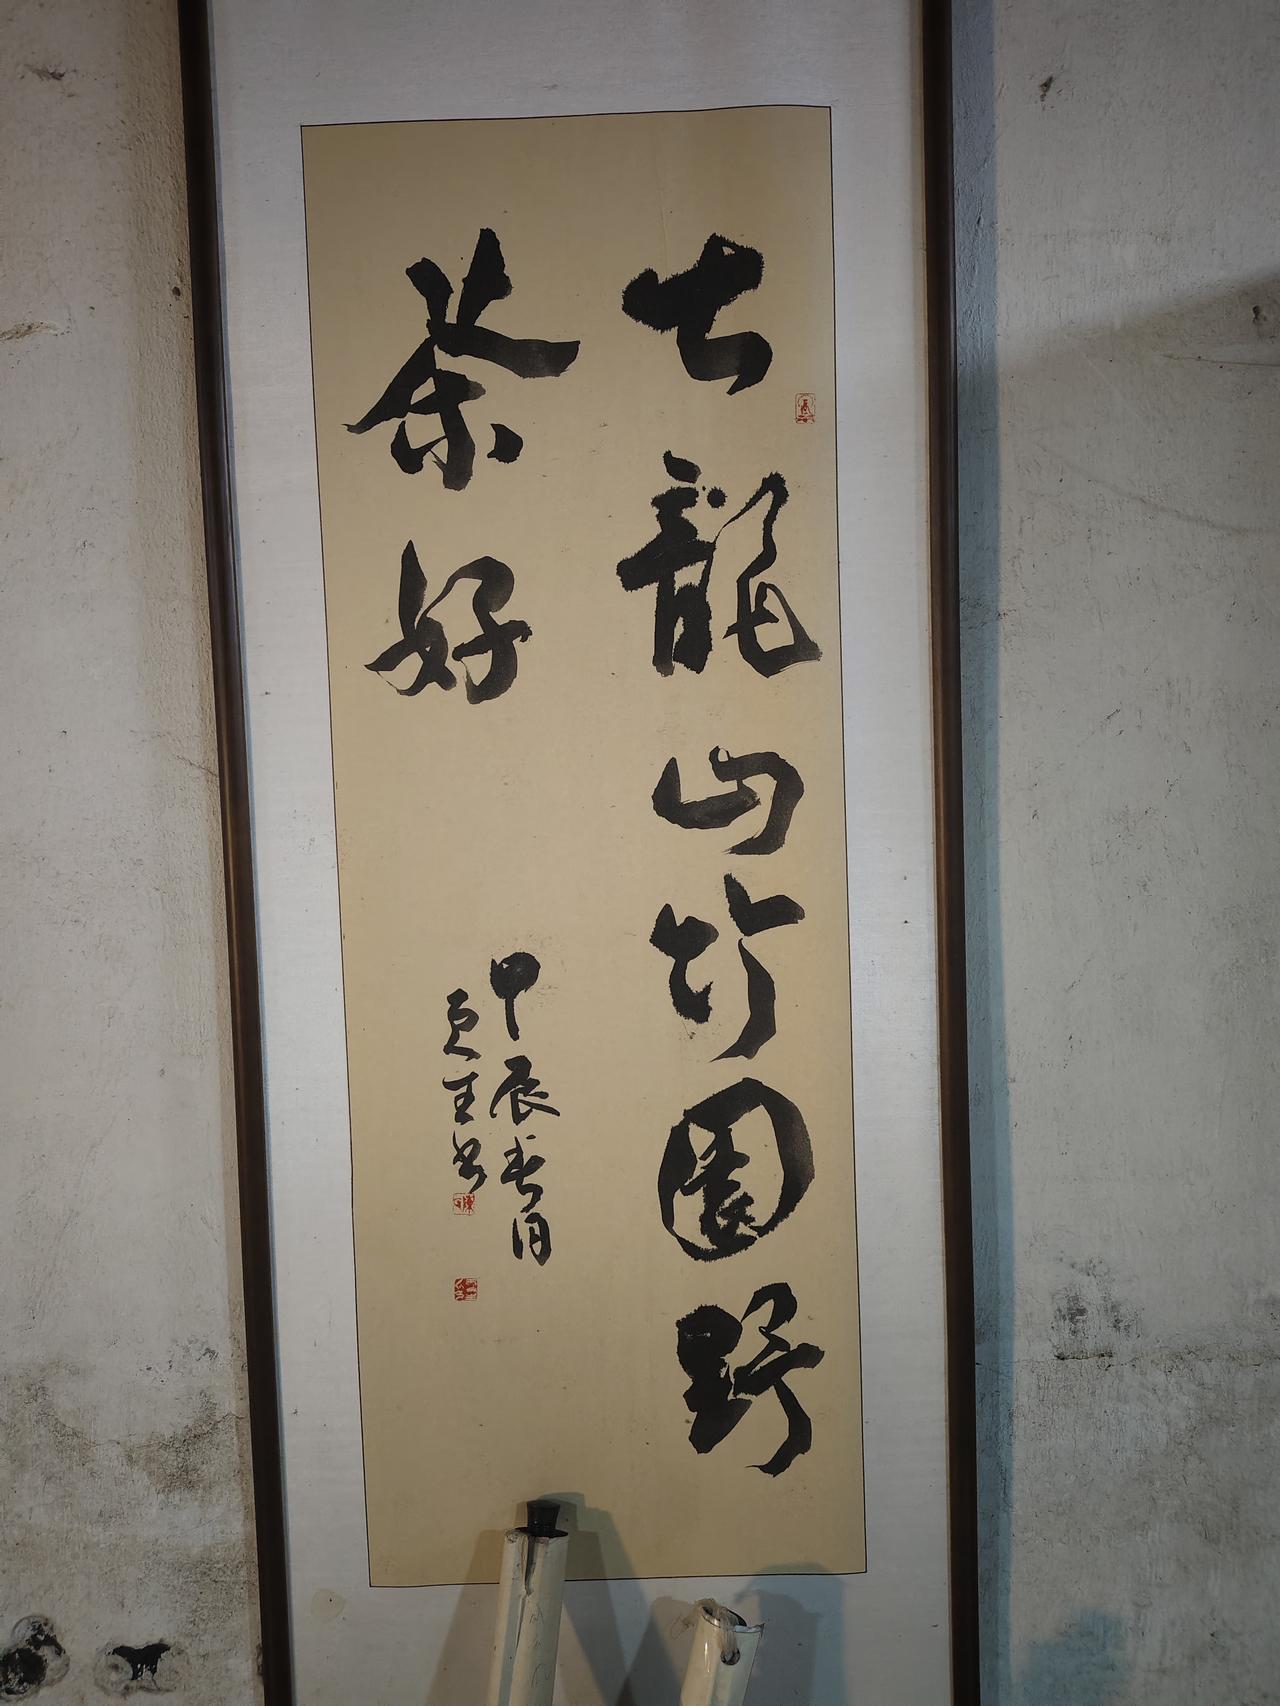 七龍山竹園野
茶好
甲辰春月